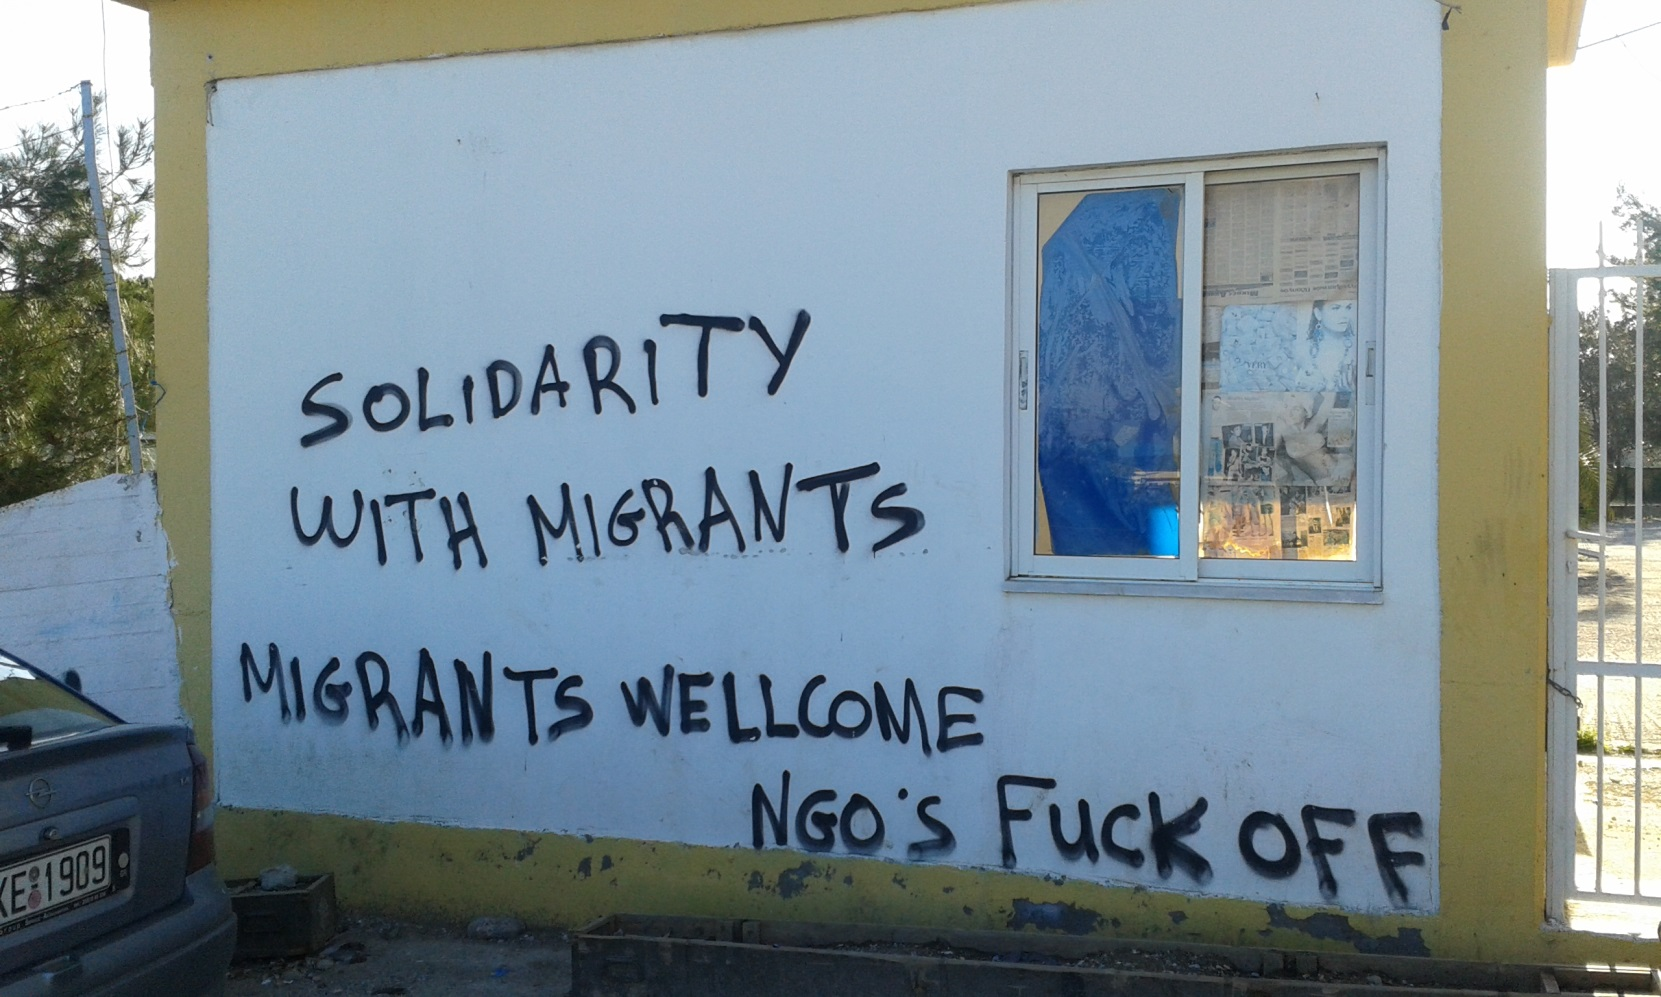 SOLIDARITY
WITH MIGRANTS
MIGRANTS WELLCOME
NGO'S FUCK OFF
XE 1909